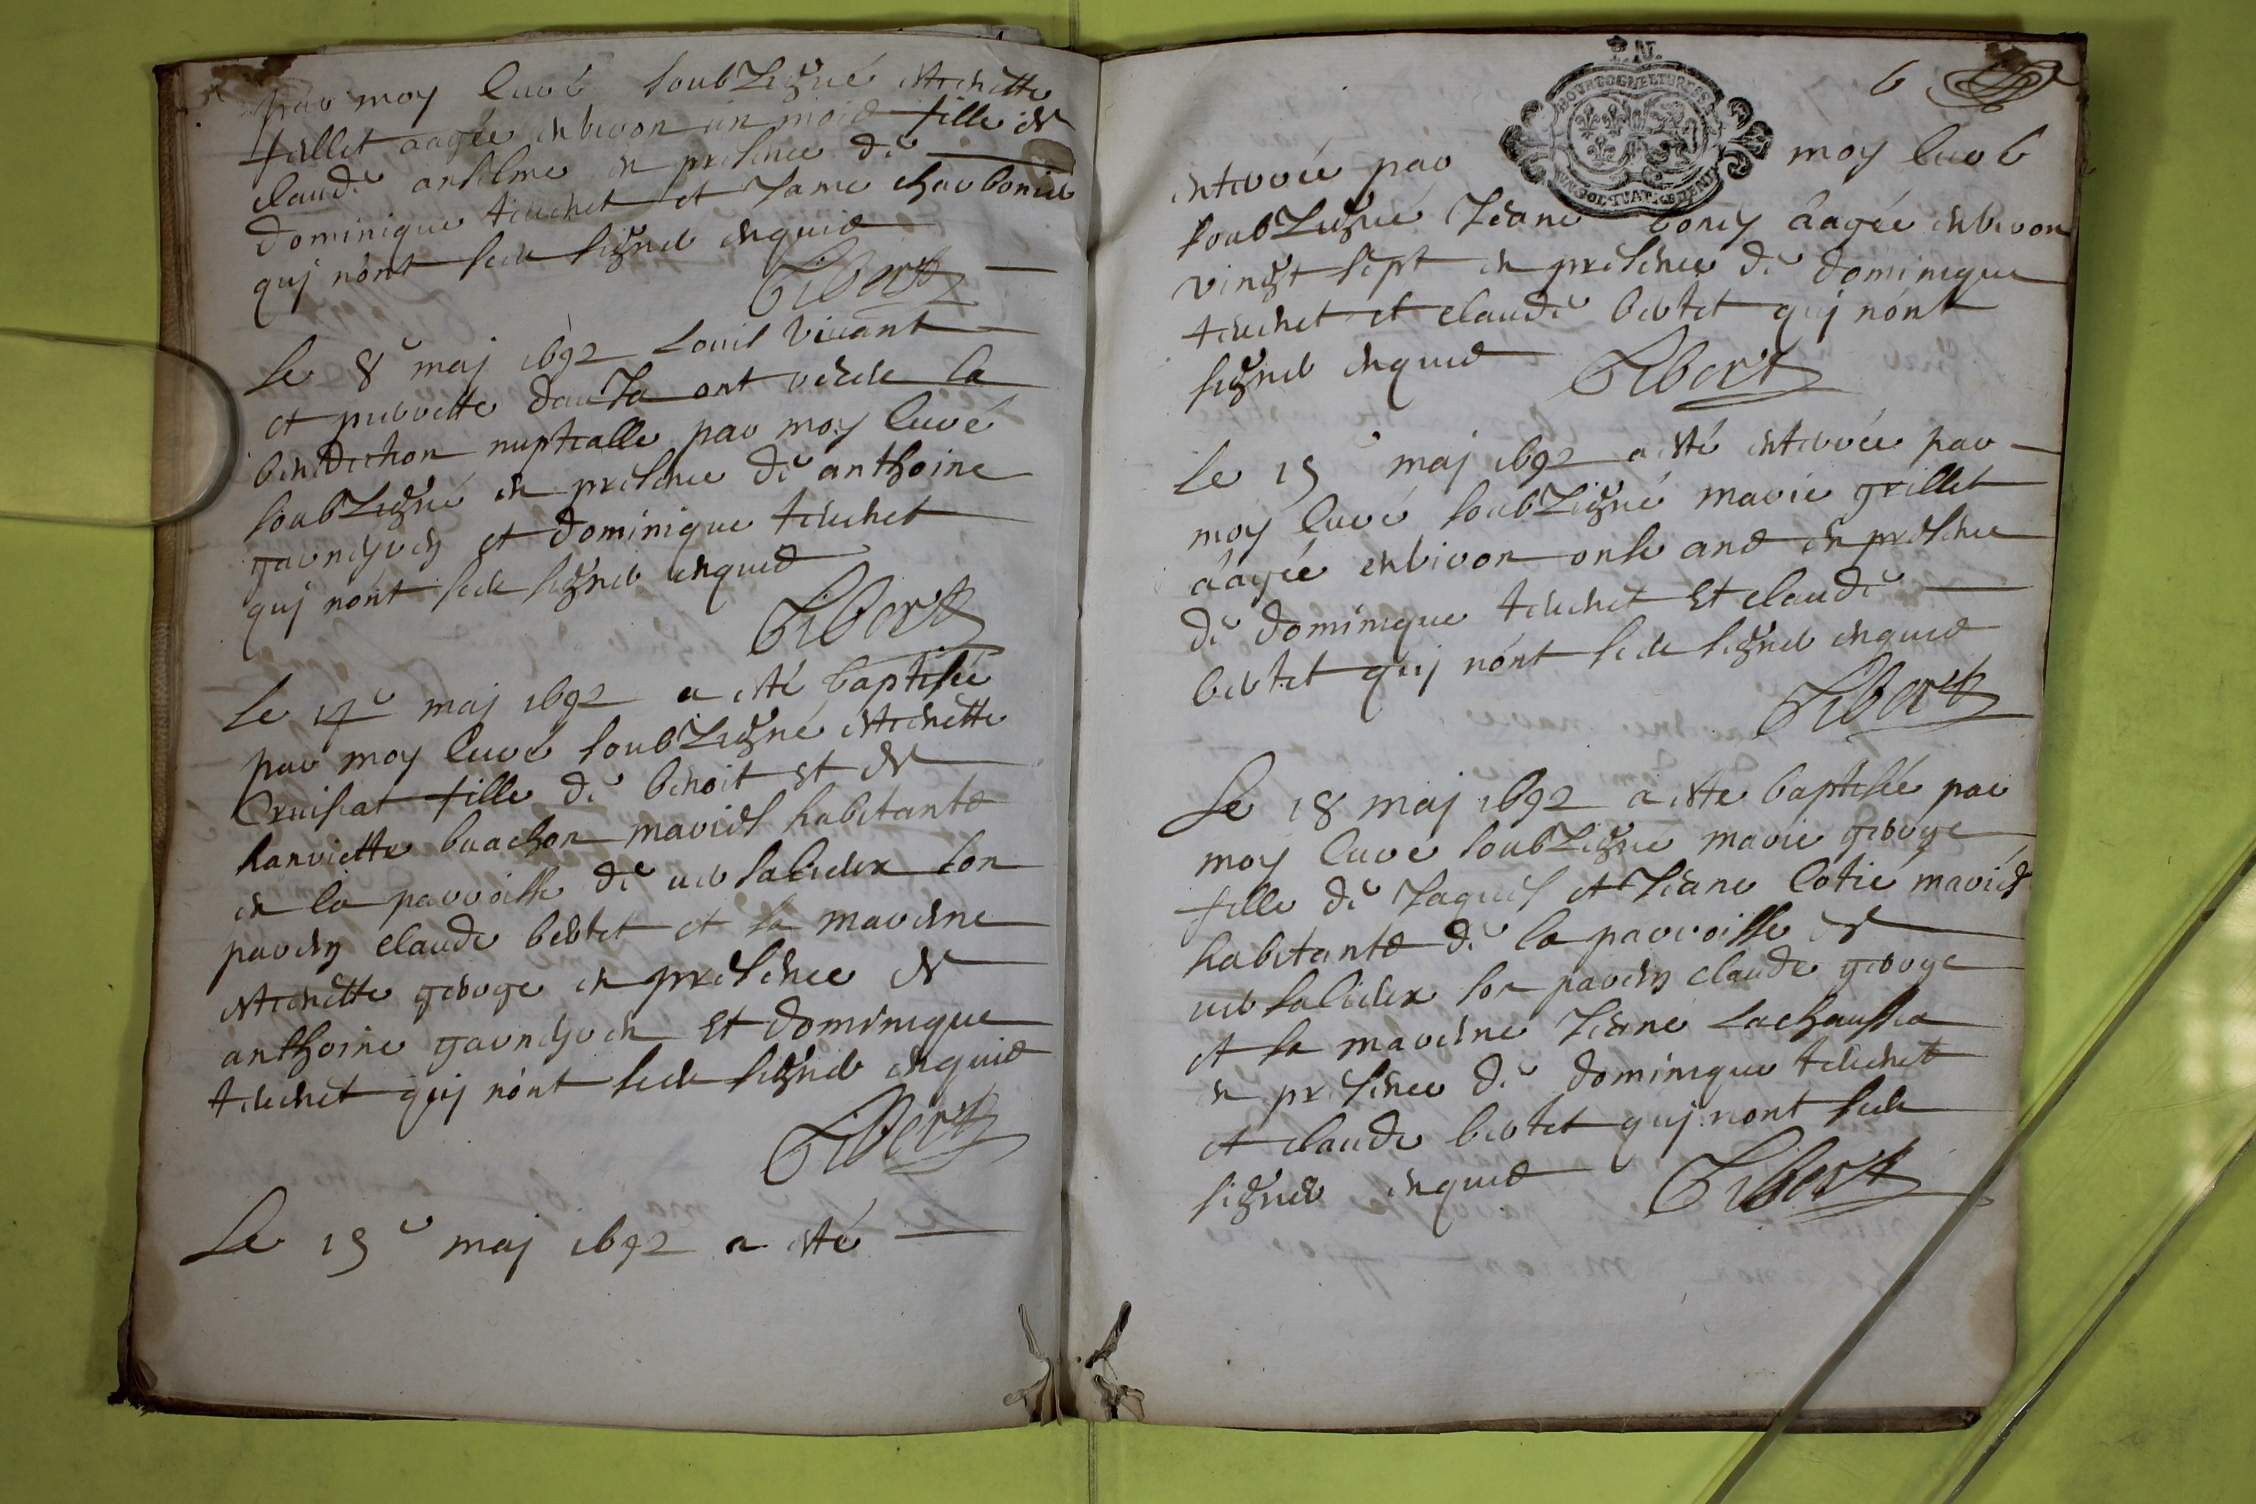 par moy curé soubZigné estienette
fillet aagée enbiron un mois fille de
claude anselme en presence de
dominique tienhet et Jame charbonier
quj nónt sceu signer enquis
Gibert
Le 8e maj 1692 Louis vivant
et pierrette dauJa ont receu la
benediction nuptialle par moy curé
soubZigné en presence de anthoine
et dominique tienhet
quj nont sceu signer enquis
Gibert
Le 14e maj 1692 a esté baptisée
par moy curé soubZigné estienette
Cruisat fille de benoit et de
harriette buachon mariés habitants
en la parroisse de son
parein claude bertet et sa mareine
estienette george en presence de
anthoine et dominique
tienhet quj nónt sceu signer enquis
Gibert
Le 15e maj 1692 a esté
6
enterrée par moy curé
soubZigné Jeane aagée enbiron
vingt sept en presence de dominique
tienhet et claude bertet quj nónt
signer enquis Gibert
Le 15e maj 1692 a esté enterrée par
moy curé soubZigné marie grillet
aagée enbiron onse ans en presence
de dominique tienhet et claude
bertet quj nónt sceu signer enquis
Gibert
Le 18 maj 1692 a esté baptisée par
moy curé soubZigné marie george
fille de Jaques et Jeane Cotié mariés
habitants de la parroisse de
son parein claude george
et sa mareine Jeane Lachaussia
en presence de dominique tienhet
et claude bertet quj nont sceu
signer enquis Gibert